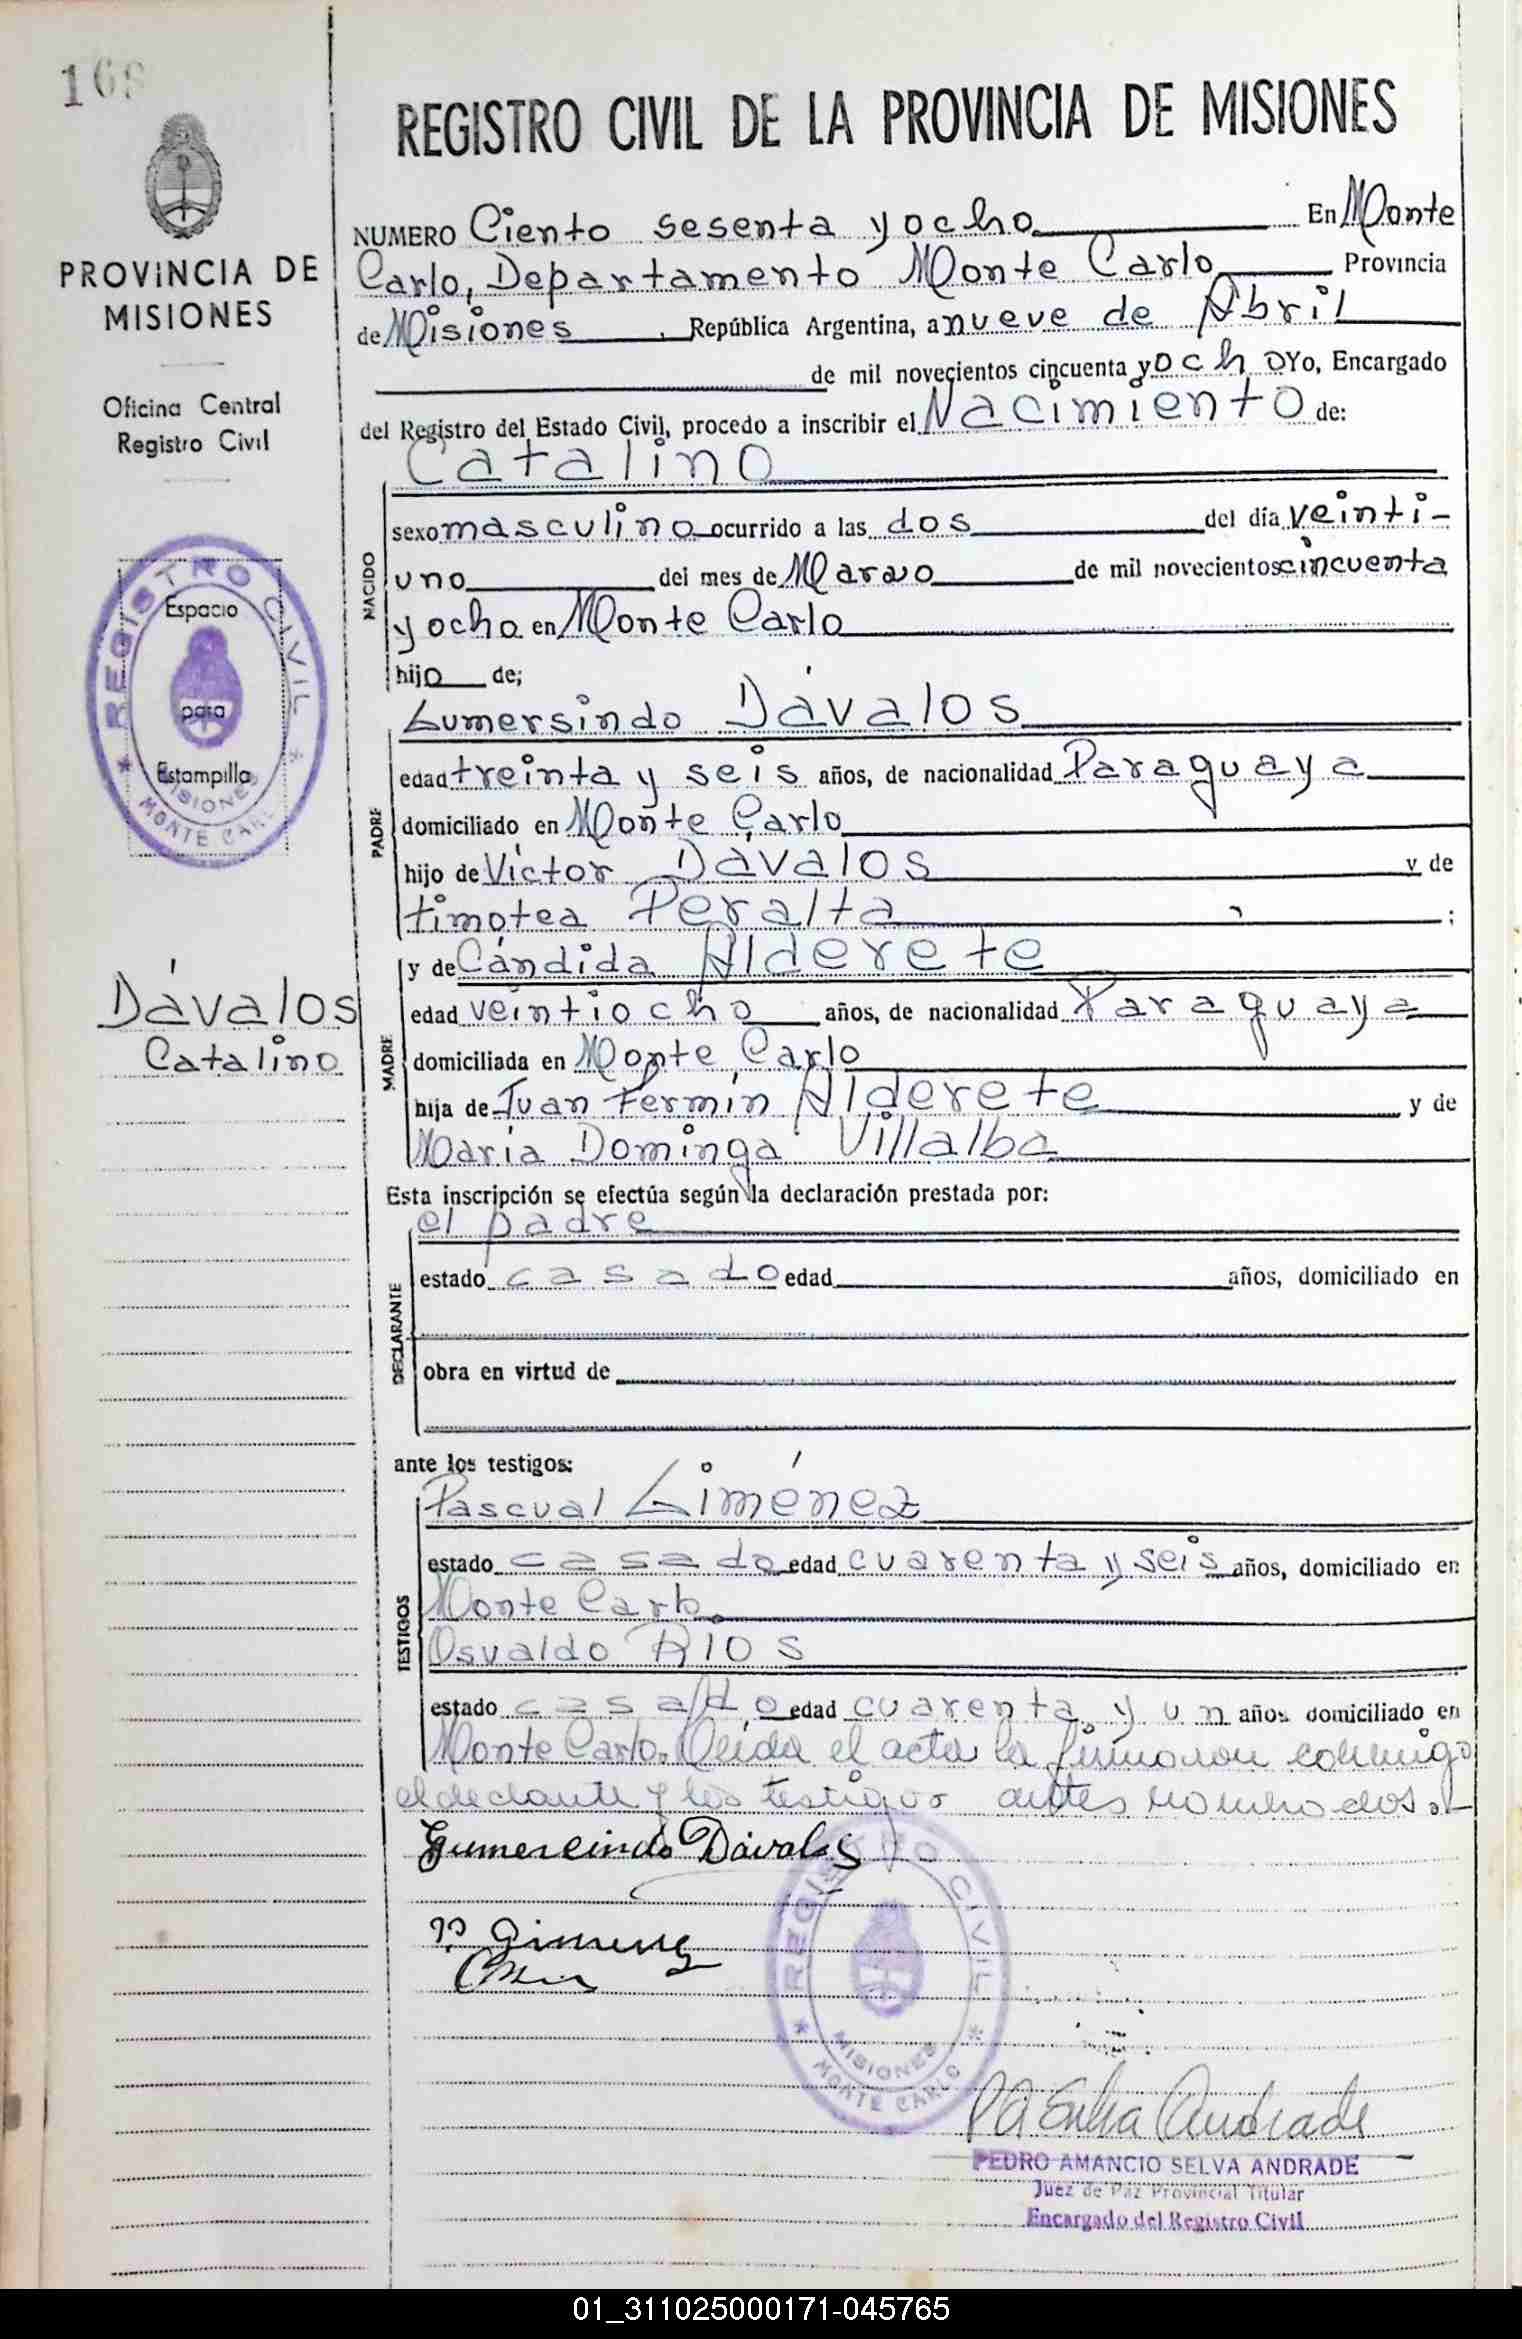 168
REGISTRO CIVIL DE LA PROVINCIA DE MISIONES
PROVINCIA DE
MISIONES
Oficina Central
Registro Civil
REGISTRO CIVIL
Espacio
para
Estampilla
MISIONES
MONTE CARLO
Dávalos
Catalino
NUMERO Ciento sesenta y ocho En Monte
Carlo, Departamento Monte Carlo Provincia
de Misiones, República Argentina, a nueve de Abril
de mil novecientos cincuenta y ocho Yo, Encargado
del Registro del Estado Civil, procedo a inscribir el Nacimiento de:
Catalino
NACIDO
sexo masculino ocurrido a las dos del día veinti-
uno del mes de Marzo de mil novecientos cincuenta
y ocho en Monte Carlo
hijo de;
PADRE
Gumersindo Dávalos
edad treinta y seis años, de nacionalidad Paraguaya
domiciliado en Monte Carlo
hijo de Víctor Dávalos y de
timotea Peralta ;
MADRE
y de Cándida Alderete
edad veintiocho años, de nacionalidad Paraguaya
domiciliada en Monte Carlo
hija de Juan Fermín Alderete y de
María Dominga Villalba
Esta inscripción se efectúa según la declaración prestada por:
DECLARANTE
el padre
estado casado edad años, domiciliado en
obra en virtud de
ante los testigos:
TESTIGOS
Pascual Giménez
estado casado edad cuarenta y seis años, domiciliado en
Monte Carlo.
Osvaldo Ríos
estado casado edad cuarenta y un años domiciliado en
Monte Carlo. Leida el acta la firmaron conmigo
el declante y los testigos antes nombrados.-
Gumercindo Dávalos
P. Gimenez
REGISTRO CIVIL
MISIONES
MONTE CARLO
PA Selva Andrade
PEDRO AMANCIO SELVA ANDRADE
Juez de Paz Provincial Titular
Encargado del Registro Civil
01_311025000171-045765